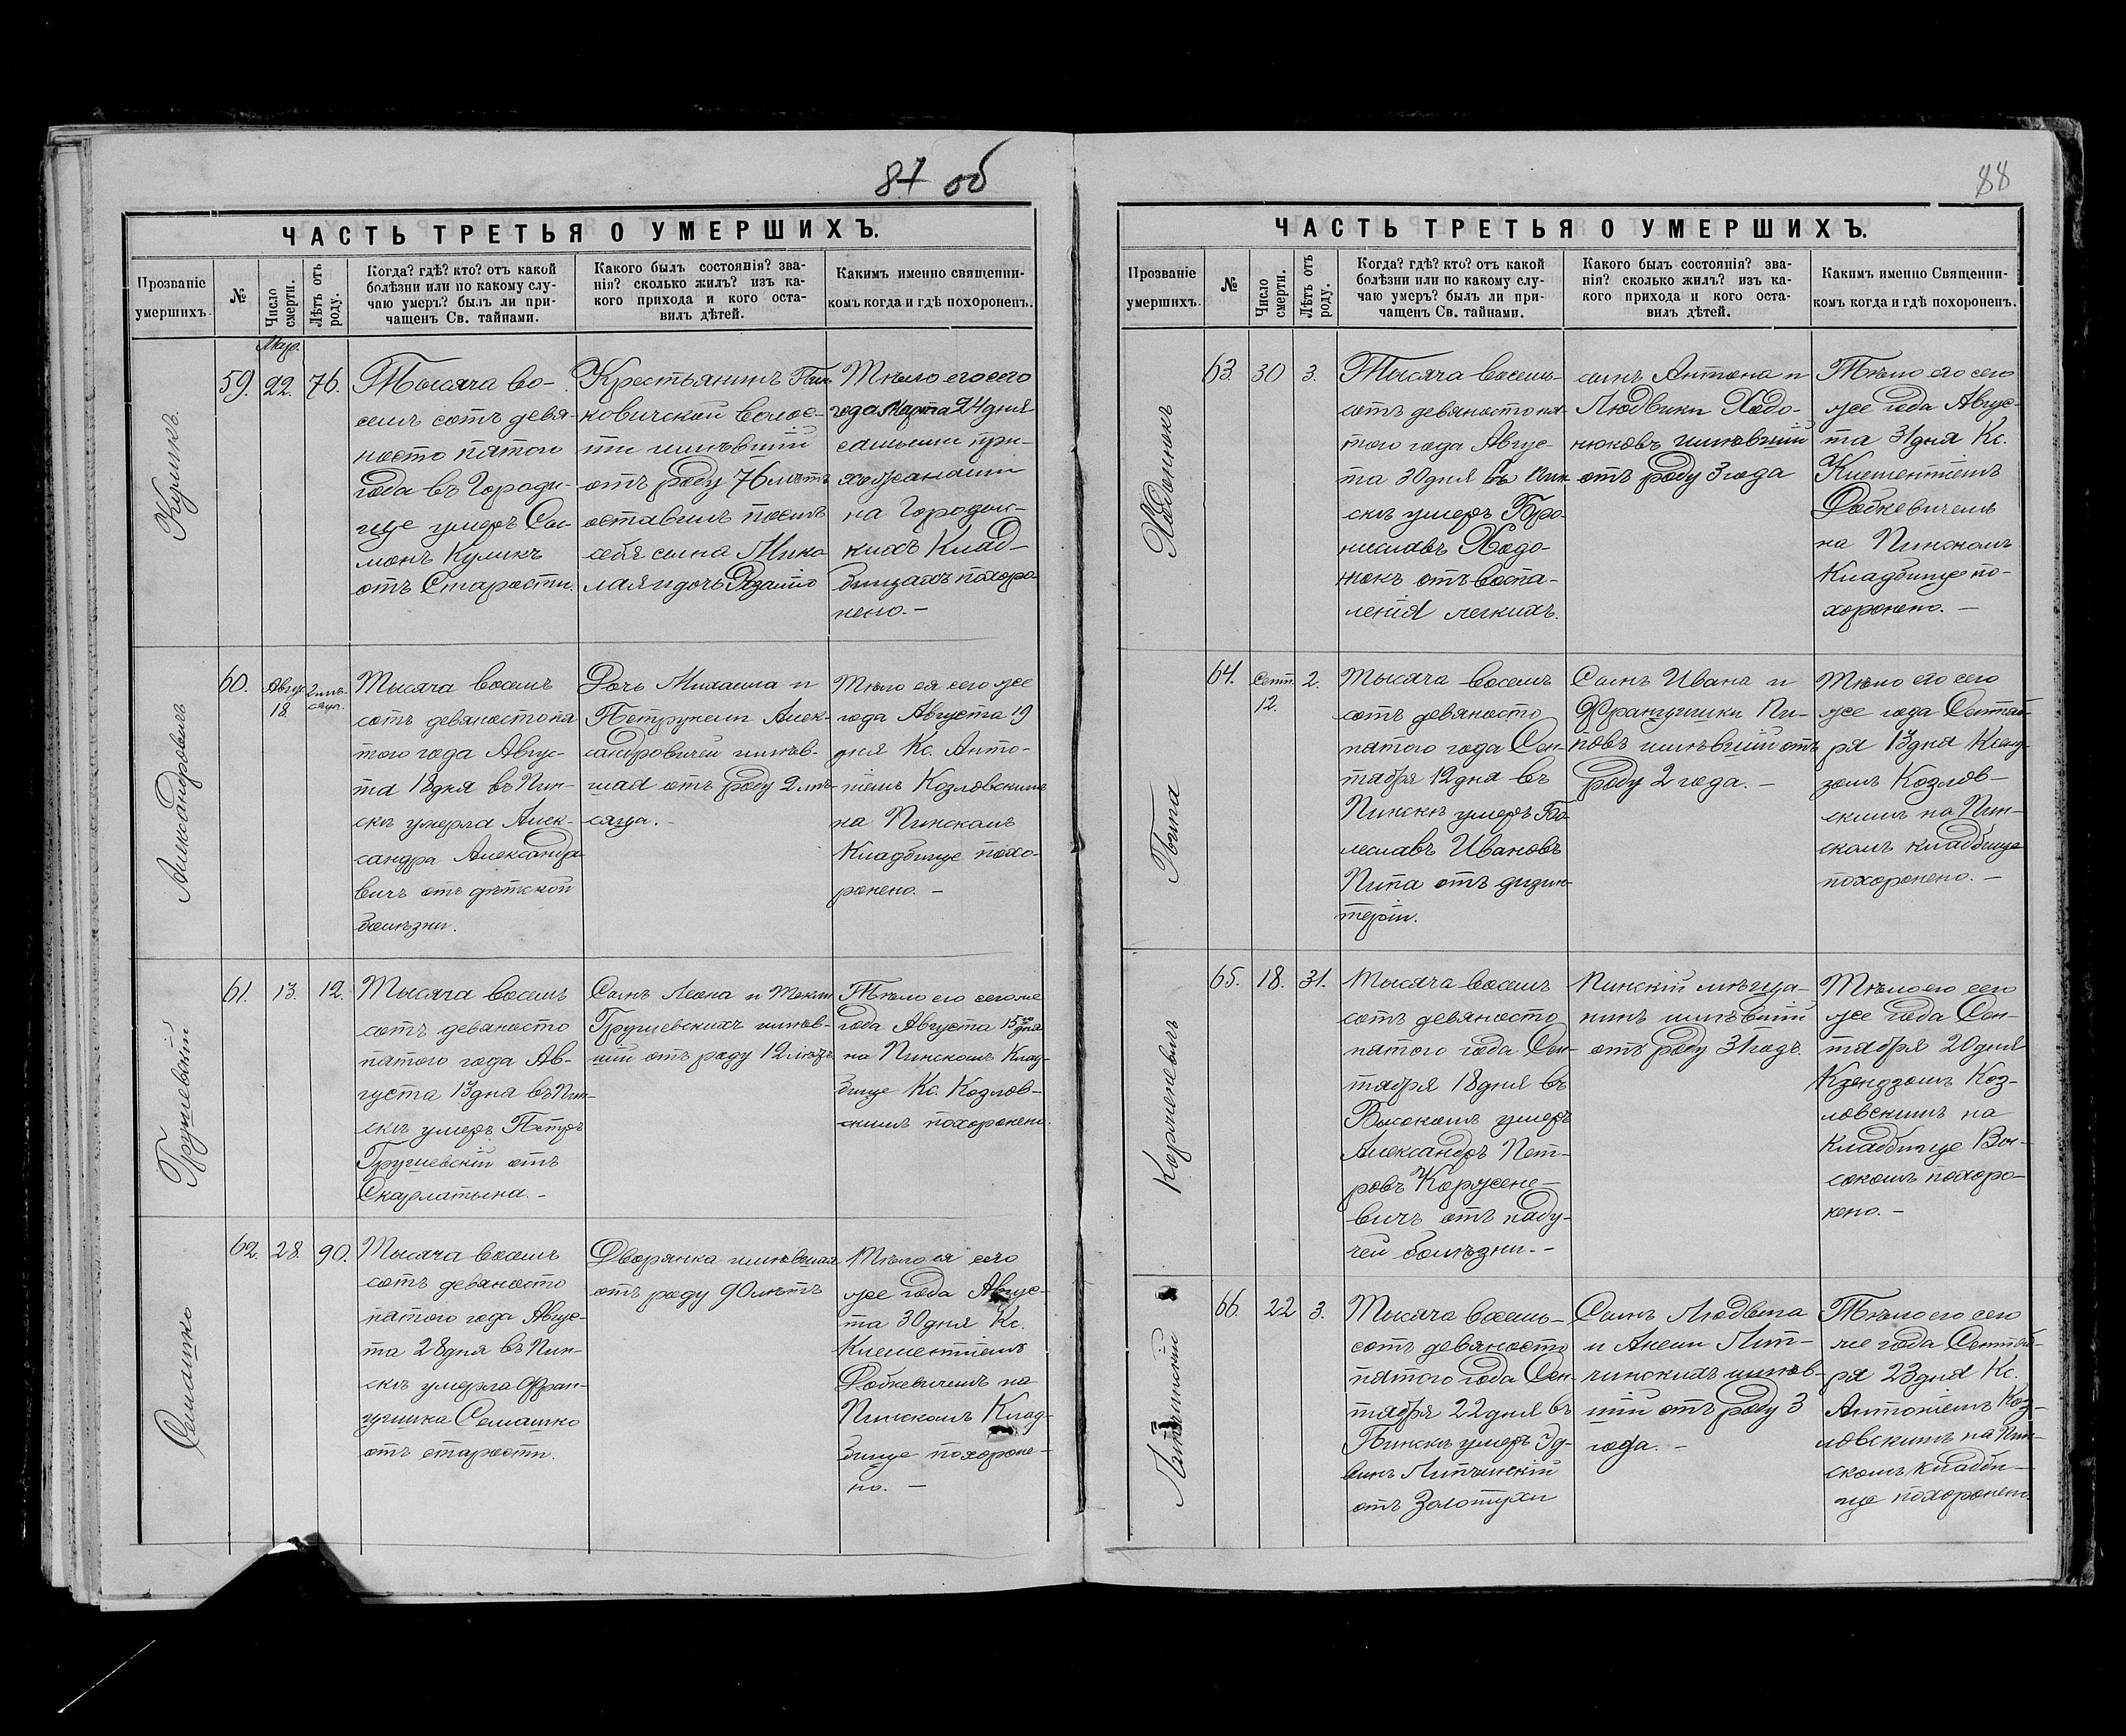 87 об
ЧАСТЬ ТРЕТЬЯ О УМЕРШИХЪ.
Прозваніе
умершихъ.
№
Число
смерти.
Лѣтъ отъ
роду.
Когда? гдѣ? кто? отъ какой
болѣзни или по какому слу-
чаю умеръ? былъ ли при-
чащенъ Св. тайнами.
Какого былъ состоянія? зва-
нія? сколько жилъ? изъ ка-
кого прихода и кого оста-
вилъ дѣтей.
Какимъ именно священни-
комъ когда и гдѣ похороненъ.
Куликъ.
59.
Мар.
22.
76.
Тысяча во-
семь сотъ девя-
носто пятого
года въ Городи-
ще умеръ Си-
монъ Куликъ
отъ Старости.
Крестьянинъ Пин-
ковичской волос-
ти имѣвшій
отъ роду 76 лѣтъ
оставилъ послѣ
себя сына Мико-
лая и дочь Розалію
Тѣло его сего
года Марта 24 дня
самыми при-
хожанами
на Городис-
кихъ Клад-
бищахъ похоро-
нено. –
Александровичъ
60.
Авгус.
18.
2 мѣ-
сяца.
Тысяча восемь
сотъ девяносто пя
того года Авгус-
та 18 дня въ Пин-
скѣ умерла Алек-
сандра Александро-
вичъ отъ дѣтской
болѣзни.
Дочь Михаила и
Петрунели Алек-
сандровичей имѣв-
шая отъ роду 2 мѣ-
сяца. –
Тѣло ея сего же
года Августа 19
дня Кс. Анто-
ніемъ Козловскимъ
на Пинскомъ
Кладбище похо-
ронено. –
Грушевскій
61.
13.
12.
Тысяча восемь
сотъ девяносто
пятого года Ав-
густа 13 дня въ Пин-
скѣ умеръ Петръ
Грушевскій отъ
Скарлатына. –
Сынъ Леона и Текли
Грушевскихъ имѣв-
шій отъ роду 12 лѣтъ
Тѣло его сего же
года Августа 15 го дня
на Пинскомъ Клад-
бище Кс. Козлов-
скимъ похоронено.
Семашко
62.
28.
90.
Тысяча восемь
сотъ девяносто
пятого года Авгус-
та 28 дня въ Пин-
скѣ умерла Фран-
цишка Семашко
отъ старости.
Дворянка имѣвшая
отъ роду 90 лѣтъ
Тѣло ея сего
же года Авгус-
та 30 дня Кс.
Клементіемъ
Фобкевичемъ на
Пинскомъ Клад-
бище похороне-
но. –
88
ЧАСТЬ ТРЕТЬЯ О УМЕРШИХЪ.
Прозваніе
умершихъ.
№
Число
смерти.
Лѣтъ отъ
роду.
Когда? гдѣ? кто? отъ какой
болѣзни или по какому слу-
чаю умеръ? былъ ли при-
чащенъ Св. тайнами.
Какого былъ состоянія? зва-
нія? сколько жилъ? изъ ка-
кого прихода и кого оста-
вилъ дѣтей.
Какимъ именно Священни-
комъ когда и гдѣ похороненъ.
Ходонюкъ
63.
30
3.
Тысяча восемь-
сотъ девяносто пя-
того года Авгус-
та 30 дня въ Пин-
скѣ умеръ Бро-
ниславъ Ходо-
нюкъ отъ воспа-
ленія легкихъ.
сынъ Антона и
Людвики Ходо-
нюковъ имѣвшій
отъ роду 3 года
Тѣло его сего
же года Авгус-
та 31 дня Кс.
Клементіемъ
Фобкевичемъ
на Пинскомъ
Кладбище по-
хоронено. –
Пипа
64.
Септ.
12.
2.
Тысяча восемь
сотъ девяносто
пятого года Сен-
тября 12 дня въ
Пинскѣ умеръ Бо-
леславъ Ивановъ
Пипа отъ дизин-
теріи.
Сынъ Ивана и
Францишки Пи-
повъ имѣвшій отъ
роду 2 года. –
Тѣло его сего
же года Сентяб-
ря 13 дня Ксенд-
зомъ Козлов-
скимъ на Пин-
скомъ кладбище
похоронено. –
Корженевичъ
65.
18.
31.
Тысяча восемь
сотъ девяносто
пятого года Сен-
тября 18 дня въ
Высокомъ умеръ
Александръ Пет-
ровъ Коржене-
вичъ отъ паду-
чей болѣзни. –
Пинскій мѣща-
нинъ имѣвшій
отъ роду 31 годъ.
Тѣло его сего
же года Сен-
тября 20 дня
Ксендзомъ Коз-
ловскимъ на
Кладбище Вы-
сокомъ похоро-
нено. –
Липчинскій
66.
22
3.
Тысяча восемь-
сотъ девяносто
пятого года Сен-
тября 22 дня въ
Пинскѣ умеръ Эд-
винъ Липчинскій
отъ Золотухи
Сынъ Людвига
и Анели Лип-
чинскихъ имѣв-
шій отъ роду 3
года. –
Тѣло его сего
же года Сентяб-
ря 23 дня Кс.
Антоніемъ Коз-
ловскимъ на Пин-
скомъ кладби-
ще похоронено.